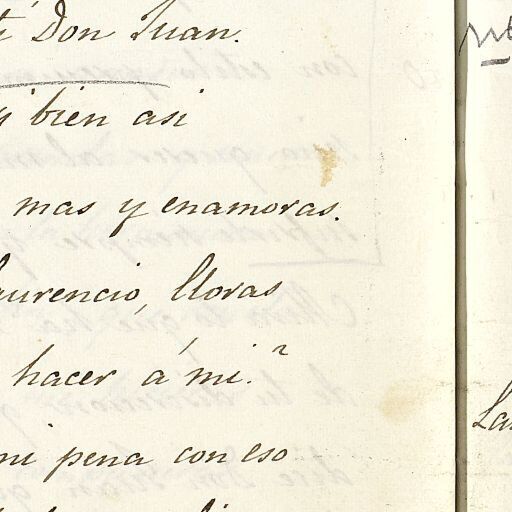 Don Juan.
bien asi
mas y enamoras.
Laurencio, lloras
hacer á mi?
mi pena con eso